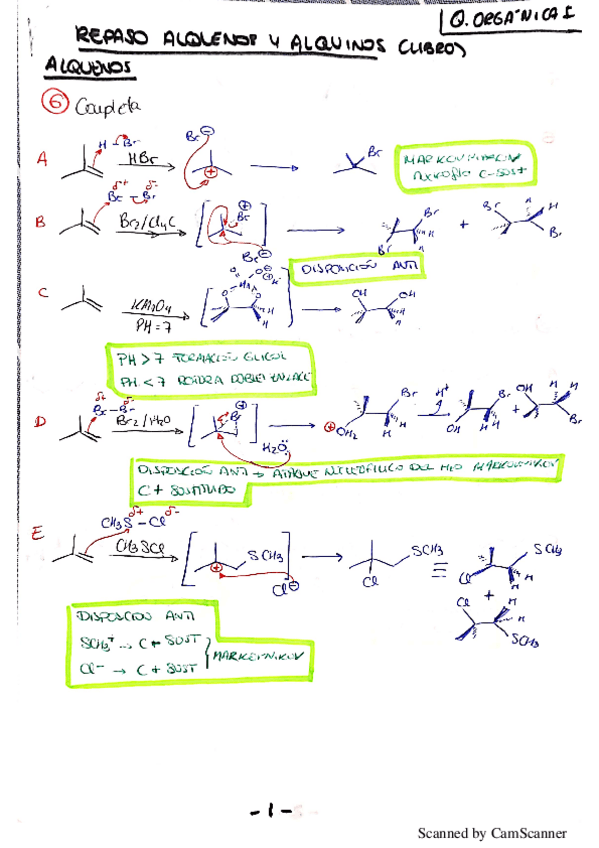 Q. ORGÁNICA I
REPASO ALQUENOS Y ALQUINOS (LIBRO)
ALQUENOS
6 Completa
A H-Br HBr Br⊖ ⊕ Br MARKOVNIKOV
NUCLEOFILO C-SUST
B δ+ δ- Br-Br Br2/Cl4C Br⊕ Br⊖ Br H Br Br H Br
DISPOSICIÓN ANTI
C KMnO4 PH=7 O O Mn O O⊖ K⊕ H H OH OH H
PH > 7 FORMACIÓN GLICOL
PH < 7 DOBLE ENLACE
D δ+ δ- Br-Br Br2/H2O Br⊕ H2O ⊕OH2 Br H H H+ OH Br H H + OH H H Br
DISPOSICIÓN ANTI → ATAQUE NUCLEOFILICO DEL H2O MARKOVNIKOV
C + SUSTITUIDO
E δ+ δ- CH3S-Cl CH3SCl SCH3 ⊕ Cl⊖ SCH3 Cl ≡ SCH3 Cl H H + Cl H H SCH3
DISPOSICION ANTI
SCH3+ → C - SUST
Cl- → C + SUST
MARKOVNIKOV
- 1 -
Scanned by CamScanner